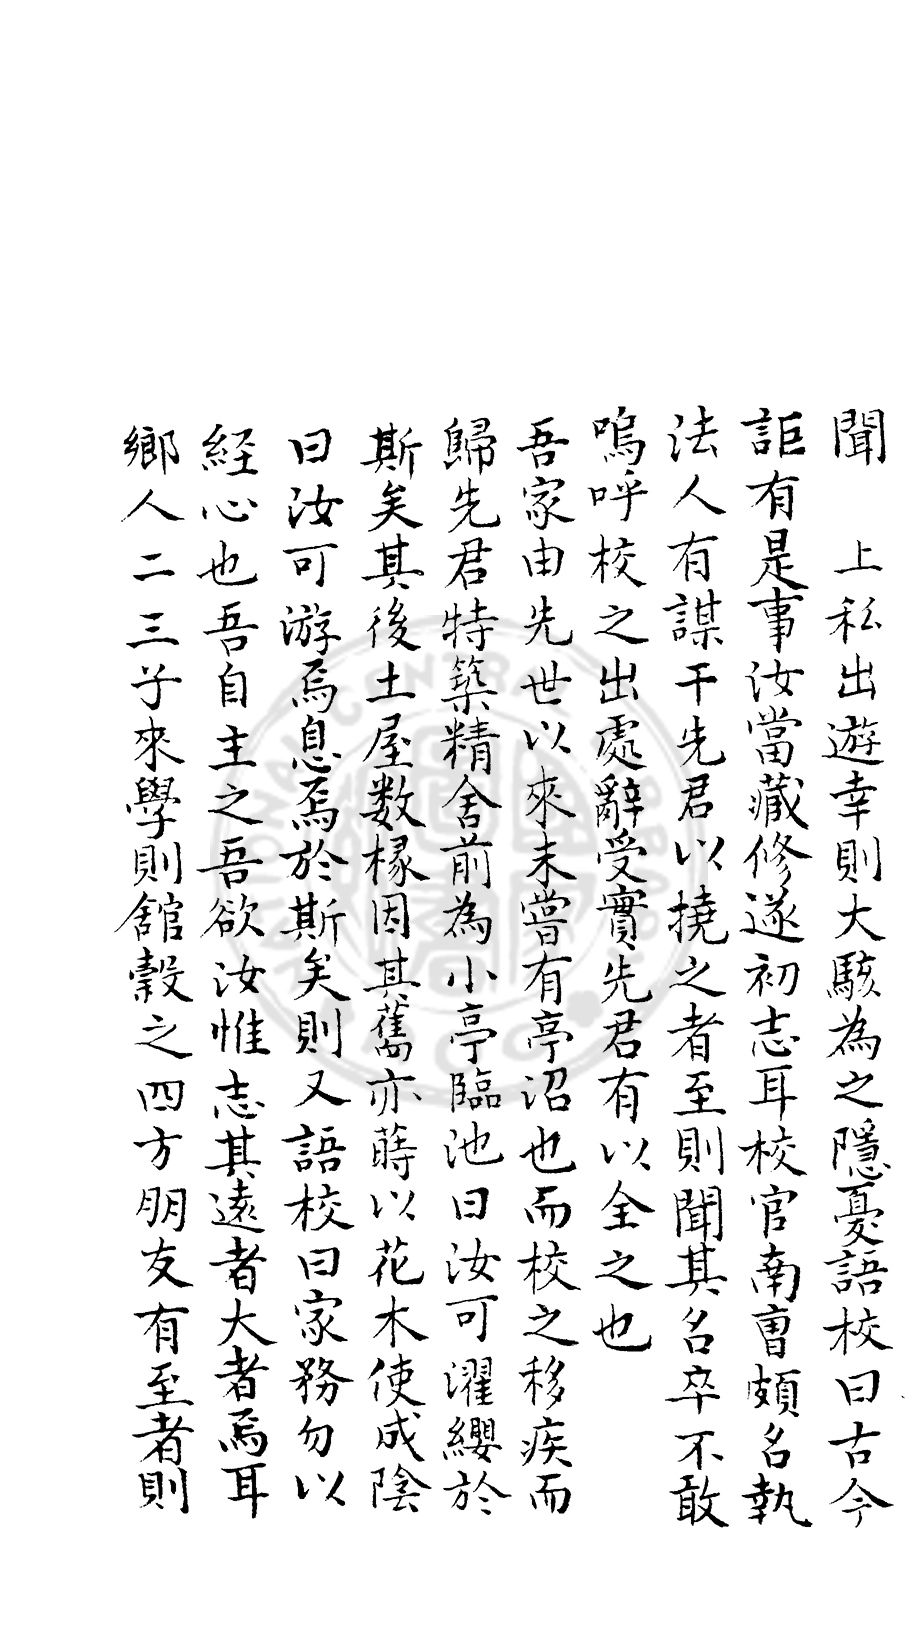 聞　上私出遊幸則大駭為之隱憂語校曰古今
詎有是事汝當藏修遂初志耳校官南曹頗名執
法人有謀干先君以撓之者至則聞其名卒不敢
嗚呼校之出處辭受實先君有以全之也
吾家由先世以來未嘗有亭沼也而校之移疾而
歸先君特築精舍前為小亭臨池曰汝可濯纓於
斯矣其後土屋数椽因其舊亦蒔以花木使成陰
曰汝可游焉息焉於斯矣則又語校曰家務勿以
経心也吾自主之吾欲汝惟志其遠者大者焉耳
鄉人二三子來學則舘穀之四方朋友有至者則